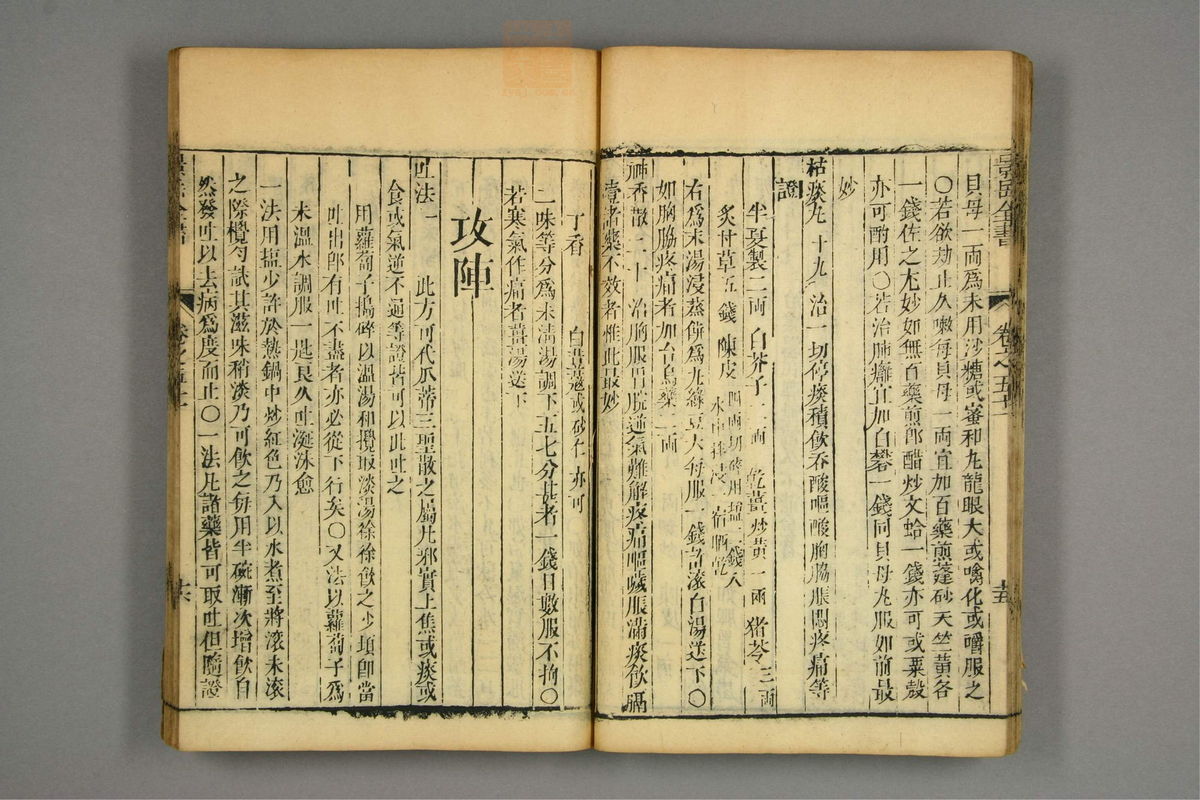 景岳全書
卷之五十一
貝母一兩爲末用沙糖或蜜和丸龍眼大或噙化或嚼服之
○若欲劫止久嗽每貝母一兩宜加百藥煎蓬砂天竺黃各
一錢佐之尤妙如無百藥煎卽醋炒文蛤一錢亦可或粟殼
亦可酌用○若治肺癰宜加白礬一錢同貝母丸服如前最
妙
枯痰丸 十九 治一切停痰積飲吞酸嘔酸胸脇脹悶疼痛等
證
半夏製二兩 白芥子二兩 乾薑炒黃一兩 猪苓三兩
炙甘草五錢 陳皮四兩切碎用塩二錢入
水中拌浸一宿晒乾
右爲末湯浸蒸餅爲丸綠豆大每服一錢許滾白湯送下○
如胸脇疼痛者加台烏藥二兩
神香散 二十 治胸脇胃脘逆氣難解疼痛嘔噦脹滿痰飲膈
噎諸藥不效者惟此最妙
丁香 白荳蔻或砂仁亦可
二味等分爲末淸湯調下五七分甚者一錢日數服不拘○
若寒氣作痛者薑湯送下
攻陣
吐法 一 此方可代瓜蒂三聖散之屬凡邪實上焦或痰或
食或氣逆不通等證皆可以此吐之
用蘿蔔子搗碎以溫湯和攪取淡湯徐徐飲之少頃卽當
吐出卽有吐不盡者亦必從下行矣○又法以蘿蔔子爲
末溫水調服一匙良久吐涎沫愈
一法用塩少許於熱鍋中炒紅色乃入以水煮至將滾未滾
之際攪勻試其滋味稍淡乃可飲之每用半碗漸次增飲自
然發吐以去病爲度而止○一法凡諸藥皆可取吐但隨證
卷之五十一